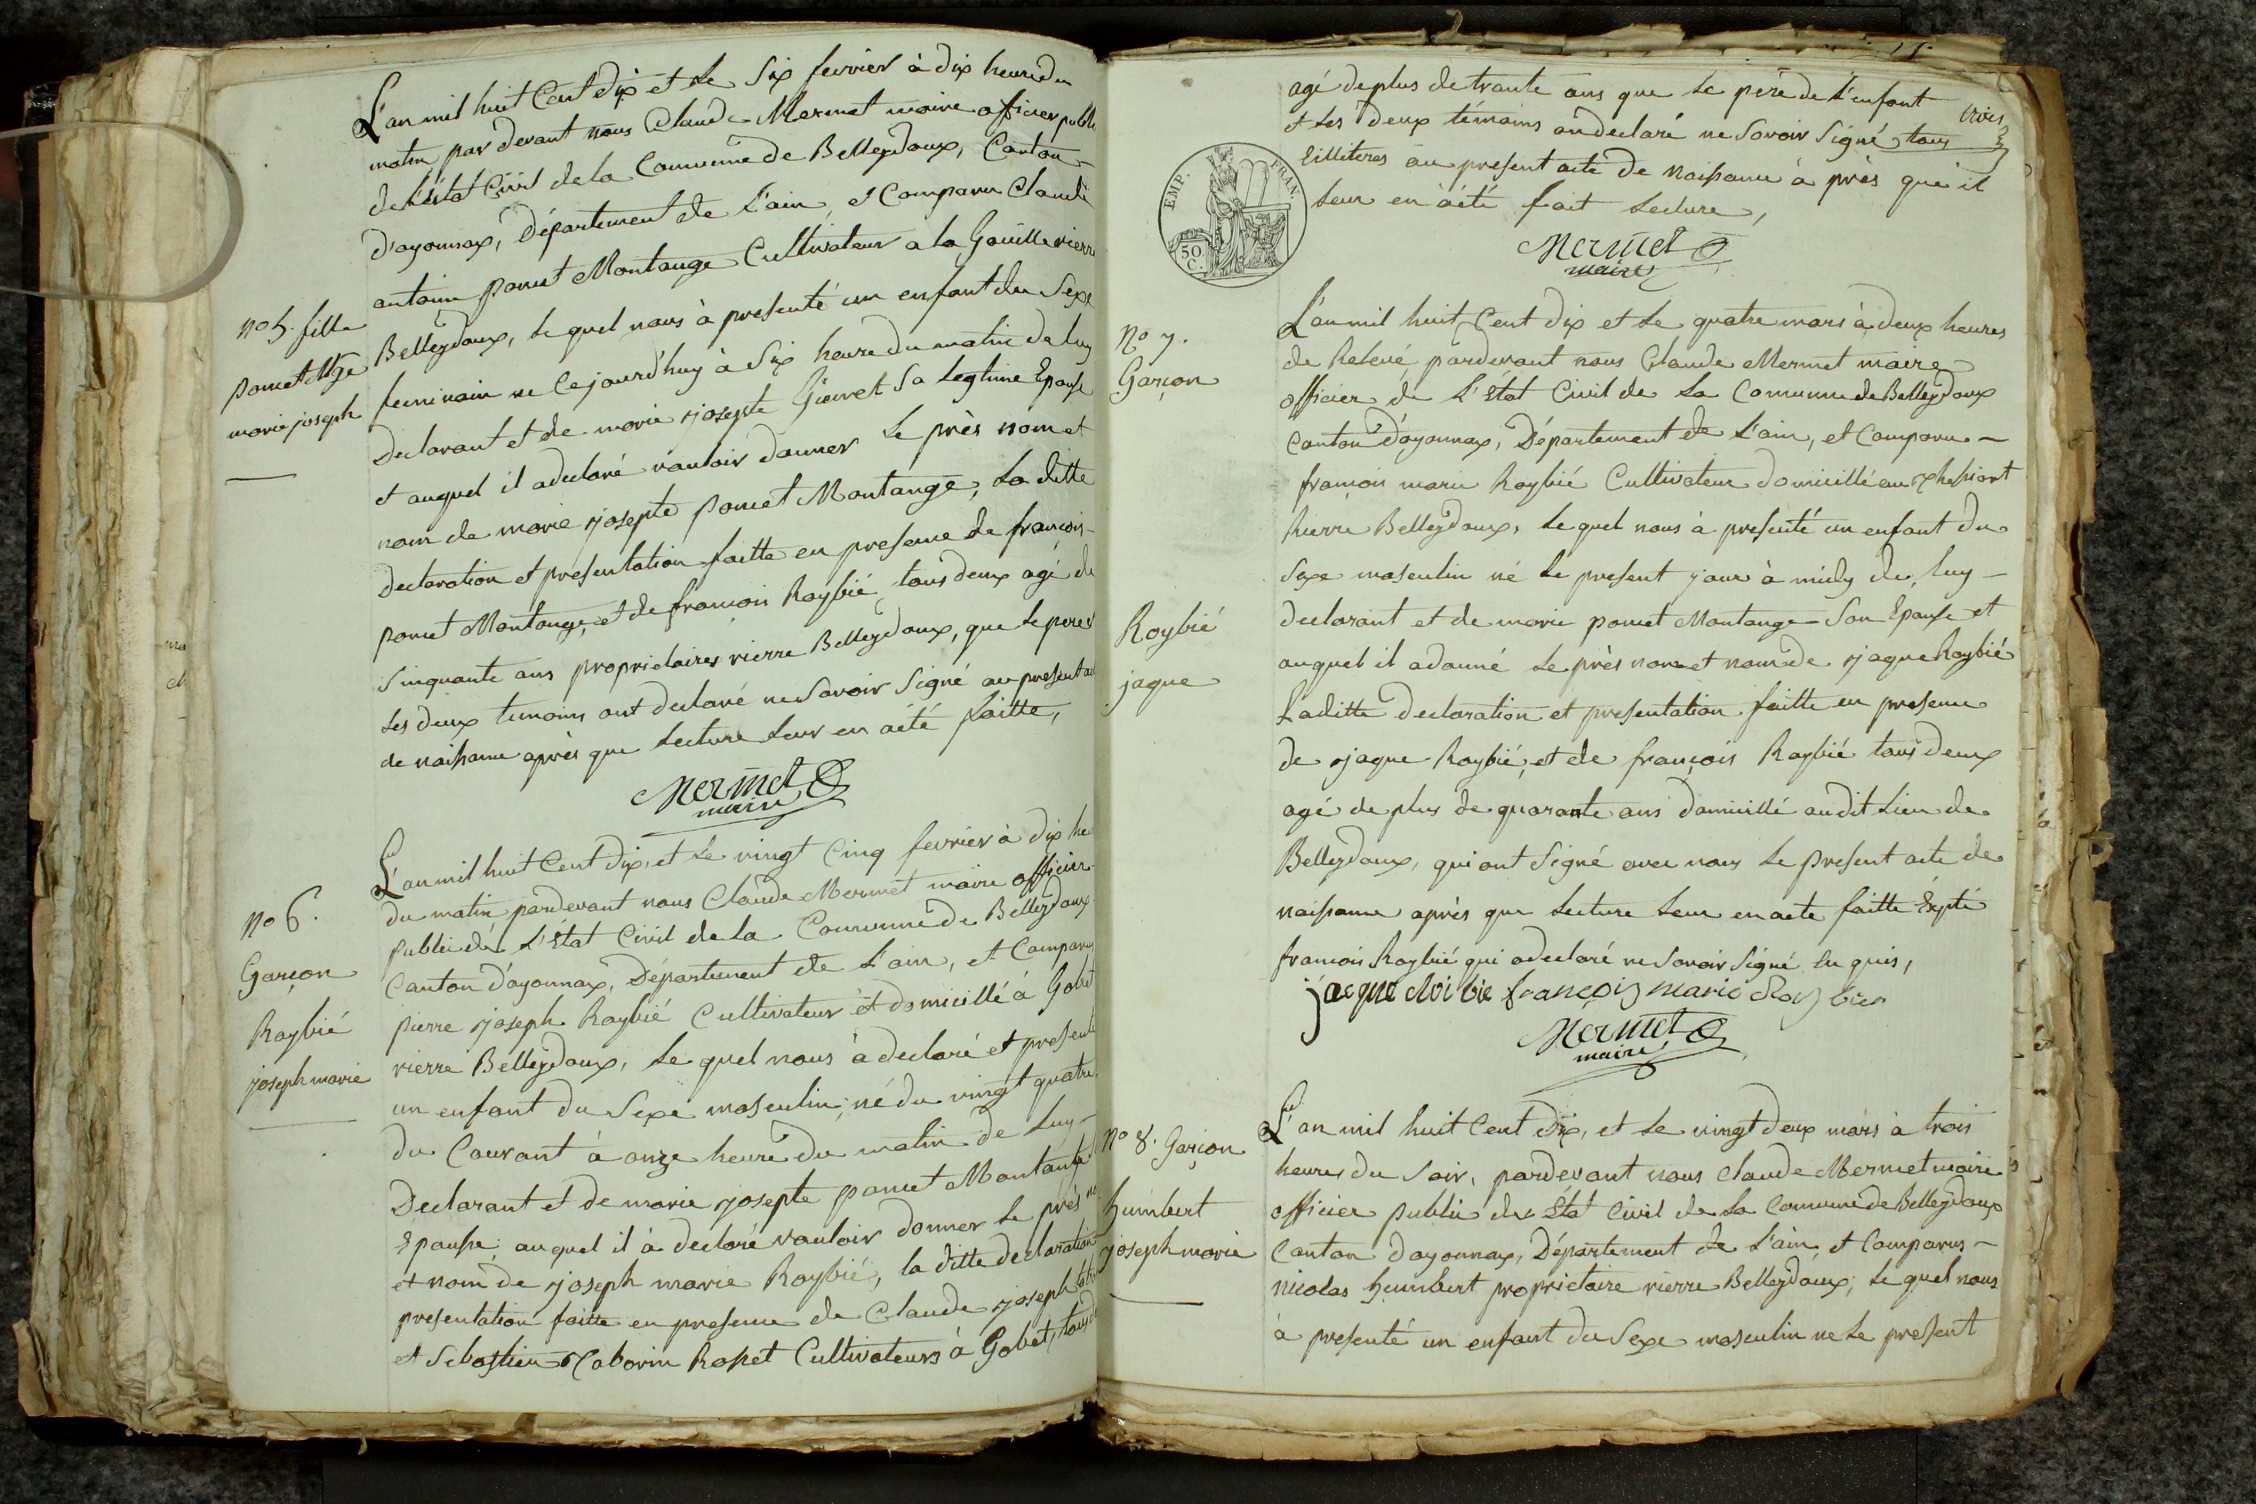 L'an mil huit Cent dix et le Six fevrier à dix heure du
matin par devant nous Claude Mermet maire officier publi
de L'état Civil de la Commune de Belleydoux, Canton
d'ayonnax, Département de L'ain, et Comparu Claude
antoine poncet Montange Cultivateur a la Gouille rierre
no 5. fille
poncet Mge
marie joseph
Belleydoux, le quel nous à presenté un enfant du Sexe
feminain ne Ce jourd'huy à Six heure du matin de luy
declarant et de marie josepte Gieuvret Sa legtime Epouse
et auquel il a declaré vouloir donner le près nom et
nom de marie josepte poncet Montange, La ditte
declaration et presentation faitte en presence de françois
poncet Montange, et de françois Roybié, tous deux agé de
Sinquante ans propriètaires rierre Belleydoux, que le pere et
les deux temoins ont declaré ne Savoir Signé au present act
de naissance après que lecture leur en a été faitte,
Mermet
maire
L'an mil huit Cent dix, et le vingt Cinq fevrier à dix he
no 6.
Garçon
Roybié
joseph marie
du matin pardevant nous Claude Mermet maire officier
public de L'état Civil de la Commune de Belleydoux
Canton d'ayonnax, Département de L'ain, et Comparu
pierre joseph Roybié Cultivateur et domicillé à Gobet
rierre Belleydoux, le quel nous à declaré et presenté
un enfant du Sexe masculin, né du vingt quatre
du Courant à onze heure du matin de luy
Declarant et de marie josepte poncet Montange
Épouse, auquel il à declaré vouloir donner le près no
et nom de joseph marie Roybié, la ditte declaration
presentation faitte en presence de Claude joseph
et Sebastien Caborin Rosset Cultivateurs à Gobet, tous d
agé de plus de trante ans que le père de L'enfant
et les deux témoins on declaré ne Savoir Signé tous trois
illiteres au present acte de naissance à près que il
leur en à été fait lecture,
EMP. FRAN.
50
C.
Mermet
maire
No 7.
Garçon
Roybié
jaque
L'an mil huit Cent dix et le quatre mars à deux heures
de Relevé, pardevant nous Claude Mermet maire
officier de L'état Civil de La Commune de Belleydoux
Canton d'ayonnax, Département de L'ain, et Comparu
françois marie Roybié Cultivateur domicillé au
Rierre Belleydoux, le quel nous à presenté un enfant du
Sexe masculin né le present jour à midy de luy
declarant et de marie poncet Montange Son Épouse et
auquel il a donné le près nom et nom de jaque Roybié
La ditte declaration et presentation faitte en presence
de jaque Roybié, et de françois Roybié tous deux
agé de plus de quarante ans domicillé audit Lieu de
Belleydoux, qui ont Signé avec nous le present acte de
naissance après que lecture leur en a ete faitte Éxpté
françois Roybié qui a declaré ne Savoir Signé en quis,
jacque Roi bie françois marie Roy bier
Mermet
maire
no 8. Garçon
humbert
joseph marie
L'an mil huit Cent dix, et le vingt deux mars à trois
heures du Soir, pardevant nous Claude Mermet maire
officier public de L'état Civil de La Commune de Belleydoux
Canton d'ayonnax, Département de L'ain, et Comparus
nicolas humbert proprietaire rierre Belleydoux, le quel nous
à presenté un enfant du Sexe masculin ne le present